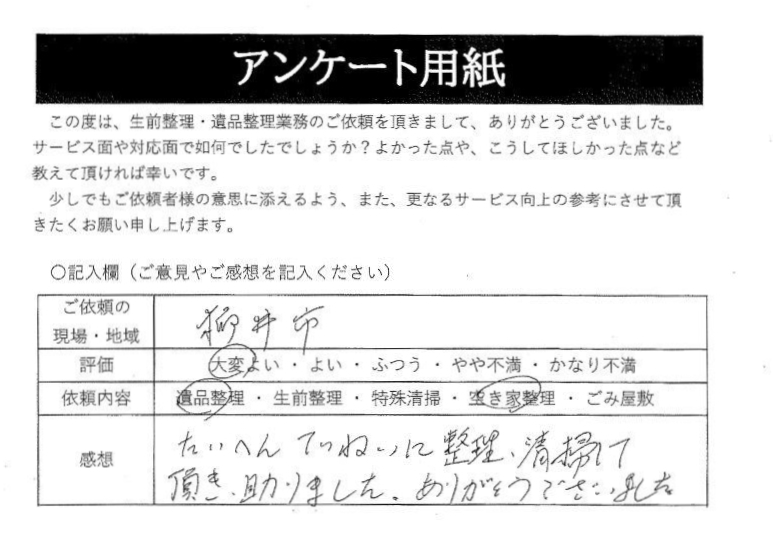 アンケート用紙
この度は、生前整理・遺品整理業務のご依頼を頂きまして、ありがとうございました。
サービス面や対応面で如何でしたでしょうか？よかった点や、こうしてほしかった点など
教えて頂ければ幸いです。
少しでもご依頼者様の意思に添えるよう、また、更なるサービス向上の参考にさせて頂
きたくお願い申し上げます。
○記入欄（ご意見やご感想を記入ください）
ご依頼の
現場・地域
柳井市
評価
大変よい ・ よい ・ ふつう ・ やや不満 ・ かなり不満
依頼内容
遺品整理 ・ 生前整理 ・ 特殊清掃 ・ 空き家整理 ・ ごみ屋敷
感想
たいへんていねいに整理、清掃して
頂き、助りました。ありがとうございました